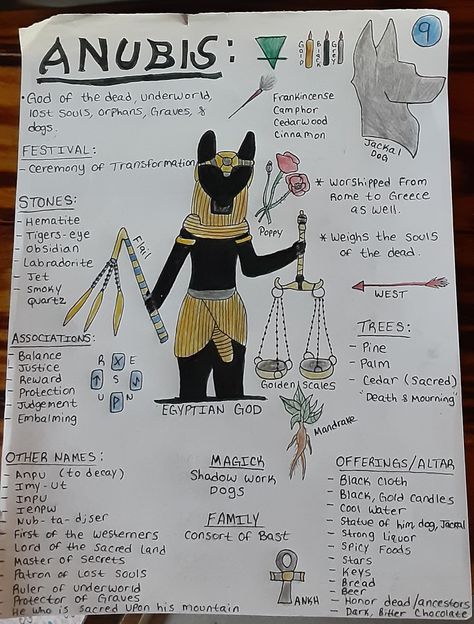 ANUBIS:
9
Gold
Black
Grey
• God of the dead, underworld,
lost souls, orphans, Graves, &
dogs.
Frankincense
Camphor
Cedarwood
Cinnamon
Jackal
DOG
FESTIVAL:
- Ceremony of Transformation
STONES:
- Hematite
- Tigers-eye
- Obsidian
- Labradorite
- Jet
- Smoky
quartz
Flail
Poppy
* Worshipped from
Rome to Greece
as well.
* Weighs the souls
of the dead.
WEST
TREES:
- Pine
- Palm
- Cedar (Sacred)
"Death & Mourning"
ASSOCIATIONS:
- Balance
- Justice
- Reward
- Protection
- Judgement
- Embalming
R X E
S
U N
Golden Scales
EGYPTIAN GOD
Mandrake
OTHER NAMES:
- Anpu (to decay)
- Imy-ut
- Inpu
- Ienpw
- Nub-ta-djser
- First of the westerners
- Lord of the Sacred land
- Master of Secrets
- Patron of Lost Souls
- Ruler of underworld
- Protector of Graves
- He who is sacred upon his mountain
MAGICK
Shadow work
Dogs
FAMILY
Consort of Bast
ANKH
OFFERINGS/ALTAR
- Black Cloth
- Black, Gold candles
- Cool Water
- Statue of him, dog, Jackal
- Strong Liquor
- Spicy Foods
- Stars
- Keys
- Bread
- Beer
- Honor dead/ancestors
- Dark, Bitter Chocolate